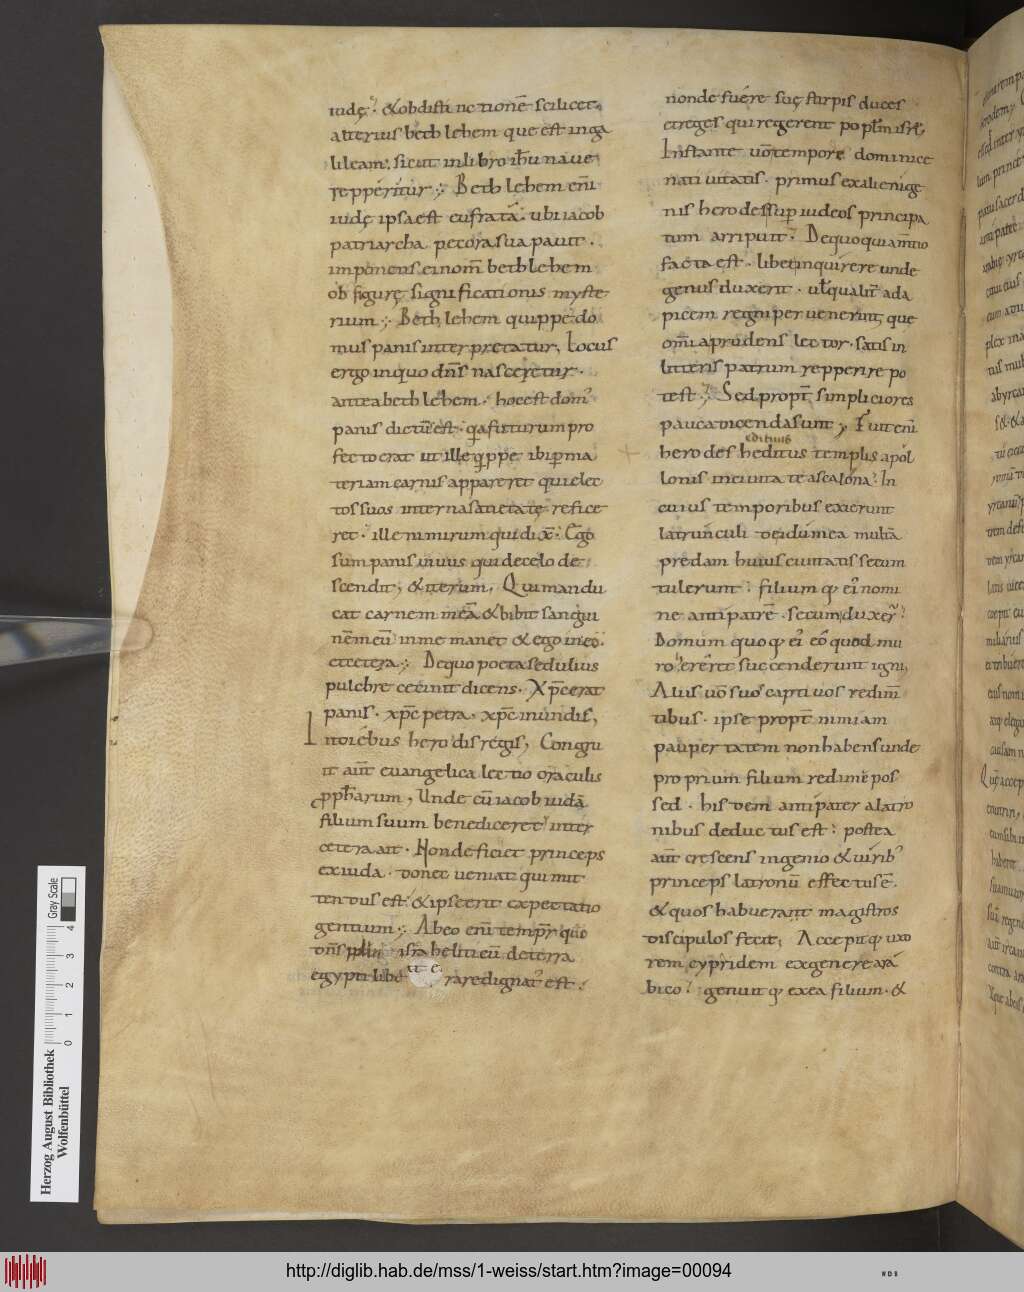 iudę. & ob distinctionē scilicet
alterius bethlehem que est in ga
lileam. sicut in libro ihū naue
repperitur. Bethlehem eni
iudę ipsa est eufrata. ubi iacob
patriarcha pecora sua pauit.
imponens ei nom̄ bethlehem
ob figurę significationis myste
rium. Bethlehem quippe do
mus panis interpretatur. Locus
ergo in quo dn̄s nasceretur.
antea bethlehem. hoc est dom'
panis dictū est. q̨a futurum pro
fecto erat ut ille q̨ppe ibi p̱ ma
teriam carnis appareret qui elec
tos suos interna satietate refice
ret. ille nimirum qui dix̄. Ego
sum panis uiuus qui de celo de
scendit, & iterum, Qui mandu
cat carnem meā & bibit sangui
nē meū in me manet & ego in eo.
et cetera. De quo poeta sedulius
pulchre cecinit dicens. Xp̄c erat
panis. xp̄c petra. xp̄c in undis,
In diebus herodis regis, Congru
it aūt euangelica lectio oraculis
prophetarum, Unde cū iacob iudā
filium suum benediceret inter
cetera ait. Non deficiet princeps
ex iuda. donec ueniat qui mit
tendus est. & ipse erit expectatio
gentium. Ab eo eni tempr̄ quo
dn̄s israhelitieū de terra
egypti liberare dignat' est.
non de fuére suę stirpis duces
et reges qui regerent popl̄m isrl̄,
Instante uō tempore dominice
natiuitatis. primus ex alienige
nis herodes sup̱ iudeos principa
tum arripuit. De quo quia m̄tio
facta est. libet inquirere unde
genus duxerit. ul̄ qualit̄ ad a
picem regni peruenerint, que
om̄ia prudens lector. satis in
litteris patrum repperire po
test. Sed propt̄ simpliciores
pauca dicenda sunt, Fuit eni
edituus
herodes heditus templi apol
lonis in ciuitate ascalona. In
cuius temporibus exierunt
latrunculi de idumea multā
predam huius ciuitatis secum
tulerunt. filium q; ei' nomi
ne antipatrē. secum duxer̄.
Domum quoq; ei' eō quod mu
ro hererēt succenderunt igni,
Auis uō suos captiuos redim̄
tibus. ipse propt̄ nimiam
paupertatem non habens unde
proprium filium redime pos
sed. hisdem antipater a latro
nibus deductus est. postea
aūt crescens ingenio & uirib'
princeps latronū effectus ē.
& quos habuerant magistros
discipulos fecit, Accepit q; uxo
rem cypridem ex genere ara
bico. genuit q; ex ea filium. &
Herzog August Bibliothek
Wolfenbüttel
0 1 2 3 4
Gray Scale
http://diglib.hab.de/mss/1-weiss/start.htm?image=00094